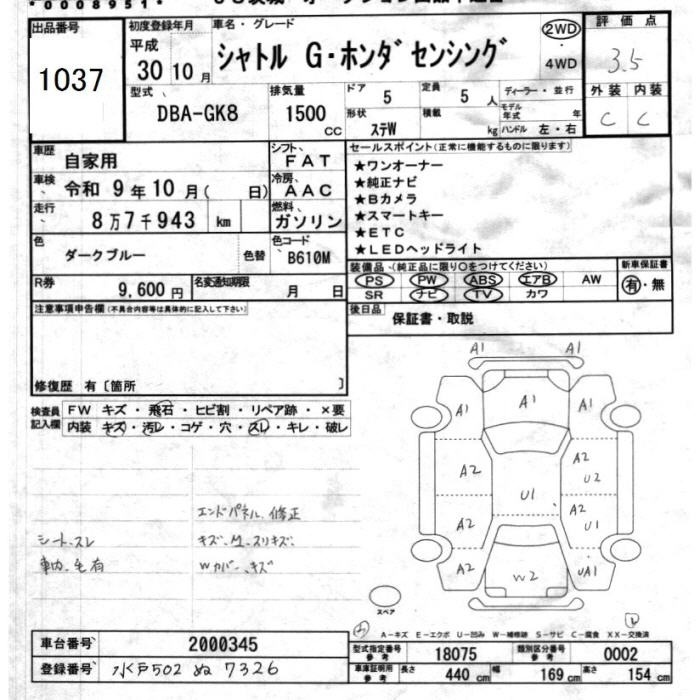 *0008951*
出品番号
1037
初度登録年月
平成
30 10 月
車名・グレード
シャトル G・ホンダセンシング
2WD
・
4WD
評価点
3.5
外装 内装
C C
型式、
DBA-GK8
排気量
1500
CC
ドア
5
定員
5 人
ディーラー・並行
形状
ステW
積載
kg
モデル年式 年
ハンドル 左・右
車歴
自家用
シフト、
FAT
車検、
令和 9年 10月( 日)
冷房、
AAC
走行
8万7千943 km
燃料、
ガソリン
色
ダークブルー
色替
色コード、
B610M
R券
9,600 円
名変通知期限
月 日
セールスポイント(正常に機能するものに限ります)
★ワンオーナー
★純正ナビ
★Bカメラ
★スマートキー
★ETC
★LEDヘッドライト
装備品、(純正品に限り○をつけてください)
PS PW ABS エアB AW
SR ナビ TV カワ
新車保証書
有・無
後日品
保証書・取説
注意事項申告欄(不具合内容等は具体的に記入して下さい)
修復歴 有〔箇所 〕
検査員記入欄
FW キズ・飛石・ヒビ割・リペア跡・×要
内装 キズ・汚レ・コゲ・穴・スレ・キレ・破レ
エンドパネル、修正
シート、スレ
キズ、M、スリキズ、
車内、毛有
Wカバー、キズ
A1 A1
A1 A1 A1
A2 A2 U2
U1
A2 A2 U1
A2 W2 UA1
スペア
A-キズ E-エクボ U-凹み W-補修跡 S-サビ C-腐食 XX-交換済
車台番号
2000345
登録番号
水戸502 ぬ 7326
型式指定番号
参考
18075
類別区分番号
参考
0002
車庫証明用
参考
長さ 440 cm
幅 169 cm
高さ 154 cm